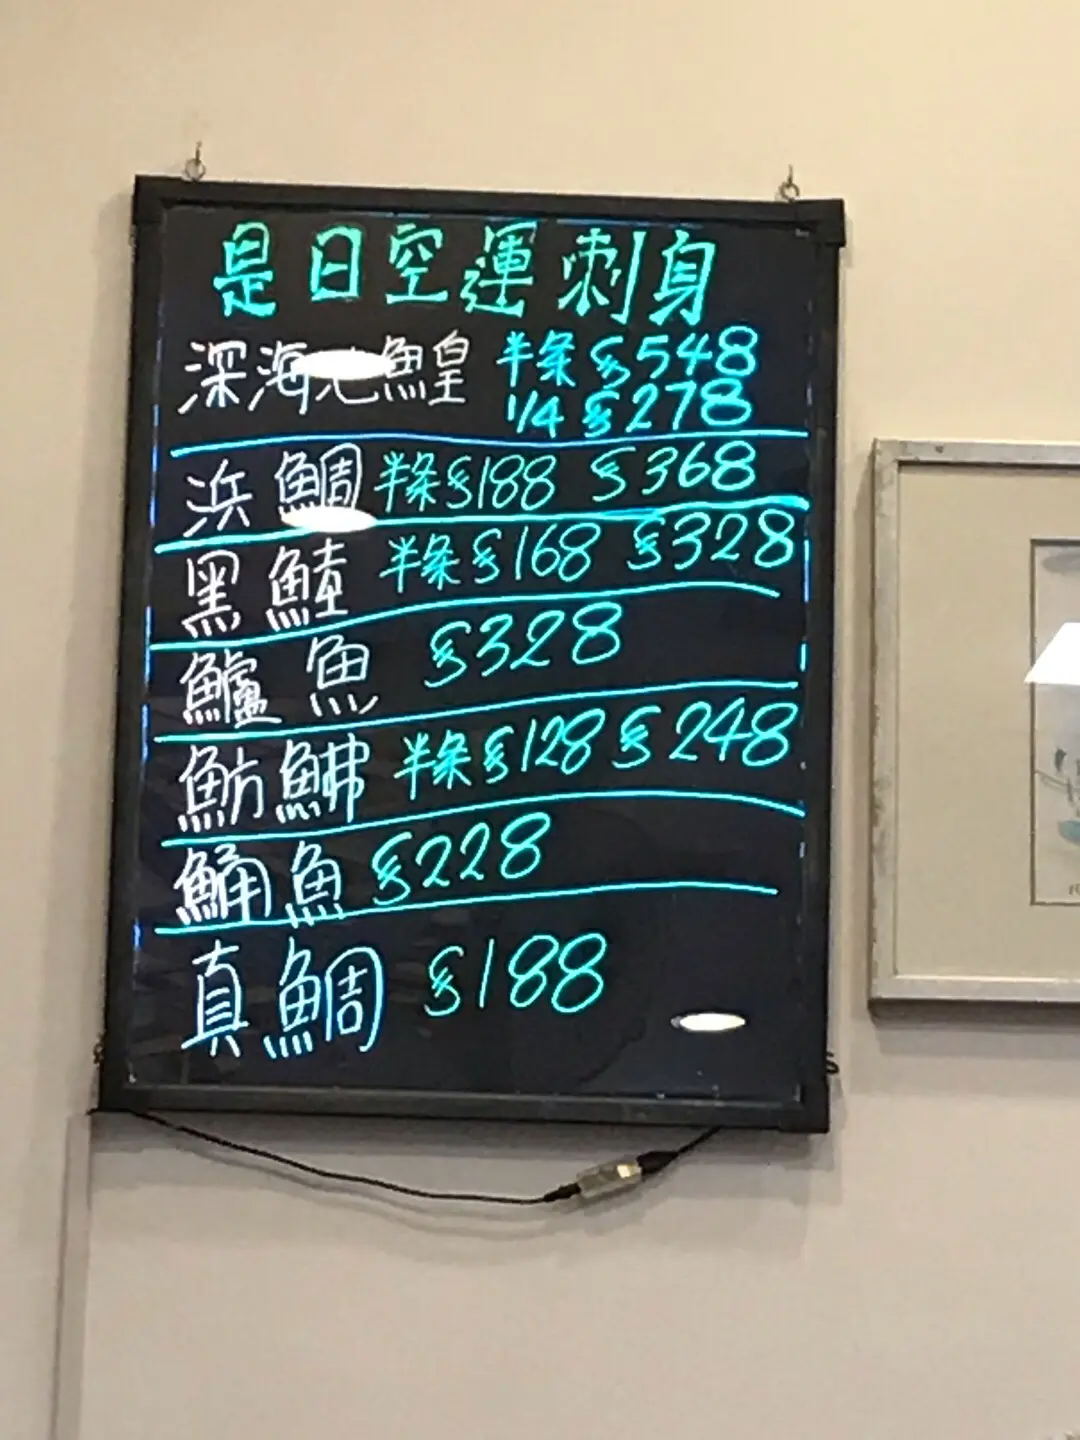 是日空運刺身
深海 鰉 半条 $548
1/4 $278
浜鯛 半条 $188 $368
黑鯥 半条 $168 $328
鱸魚 $328
魴鮄 半条 $128 $248
鯒魚 $228
真鯛 $188